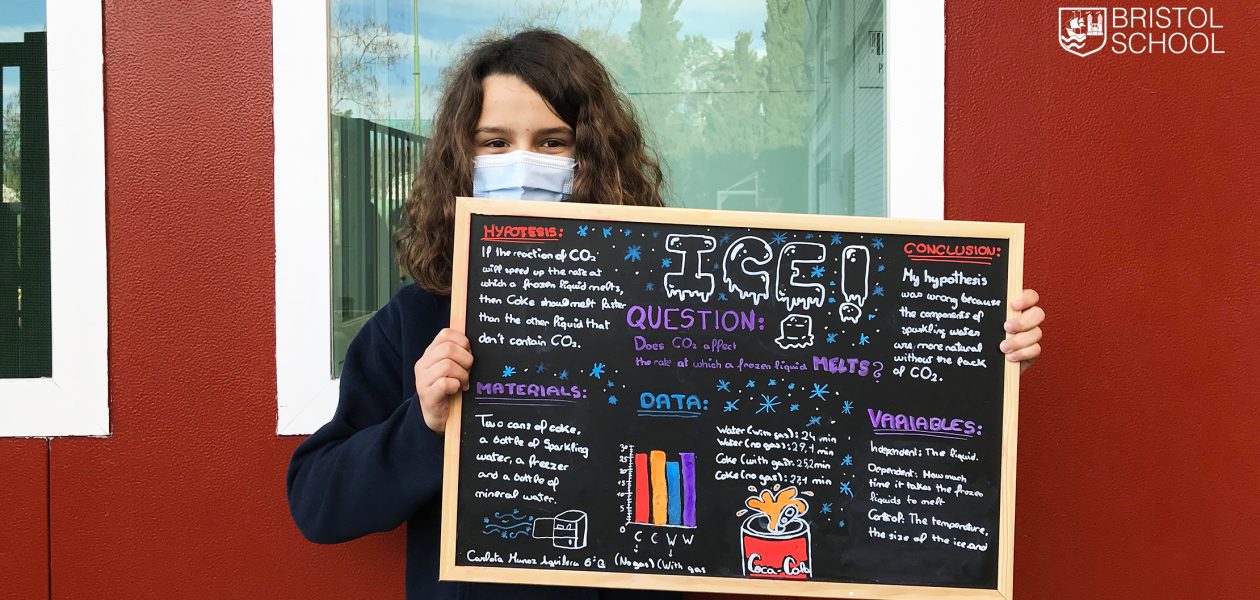 BRISTOL
SCHOOL
HYPOTESIS:
If the reaction of CO2
will speed up the rate at
which a frozen liquid melts,
then Coke should melt faster
than the other liquid that
don't contain CO2.
ICE!
QUESTION:
Does CO2 affect
the rate at which a frozen liquid MELTS?
CONCLUSION:
My hypothesis
was wrong because
the components of
sparkling water
are more natural
without the pack
of CO2.
MATERIALS:
Two cans of coke,
a bottle of sparkling
water, a freezer
and a bottle of
mineral water.
DATA:
30
25
20
15
10
5
0
C C W W
(No gas) (With gas
Water (with gas): 24 min
Water (no gas): 29,1 min
Coke (with gas): 25,2 min
Coke (no gas): 27,1 min
Coca-Cola
VARIABLES:
Independent: The liquid.
Dependent: How much
time it takes the frozen
liquids to melt
Control: The temperature,
the size of the ice and
Carlota Muñoz Aguilera 6ºQ